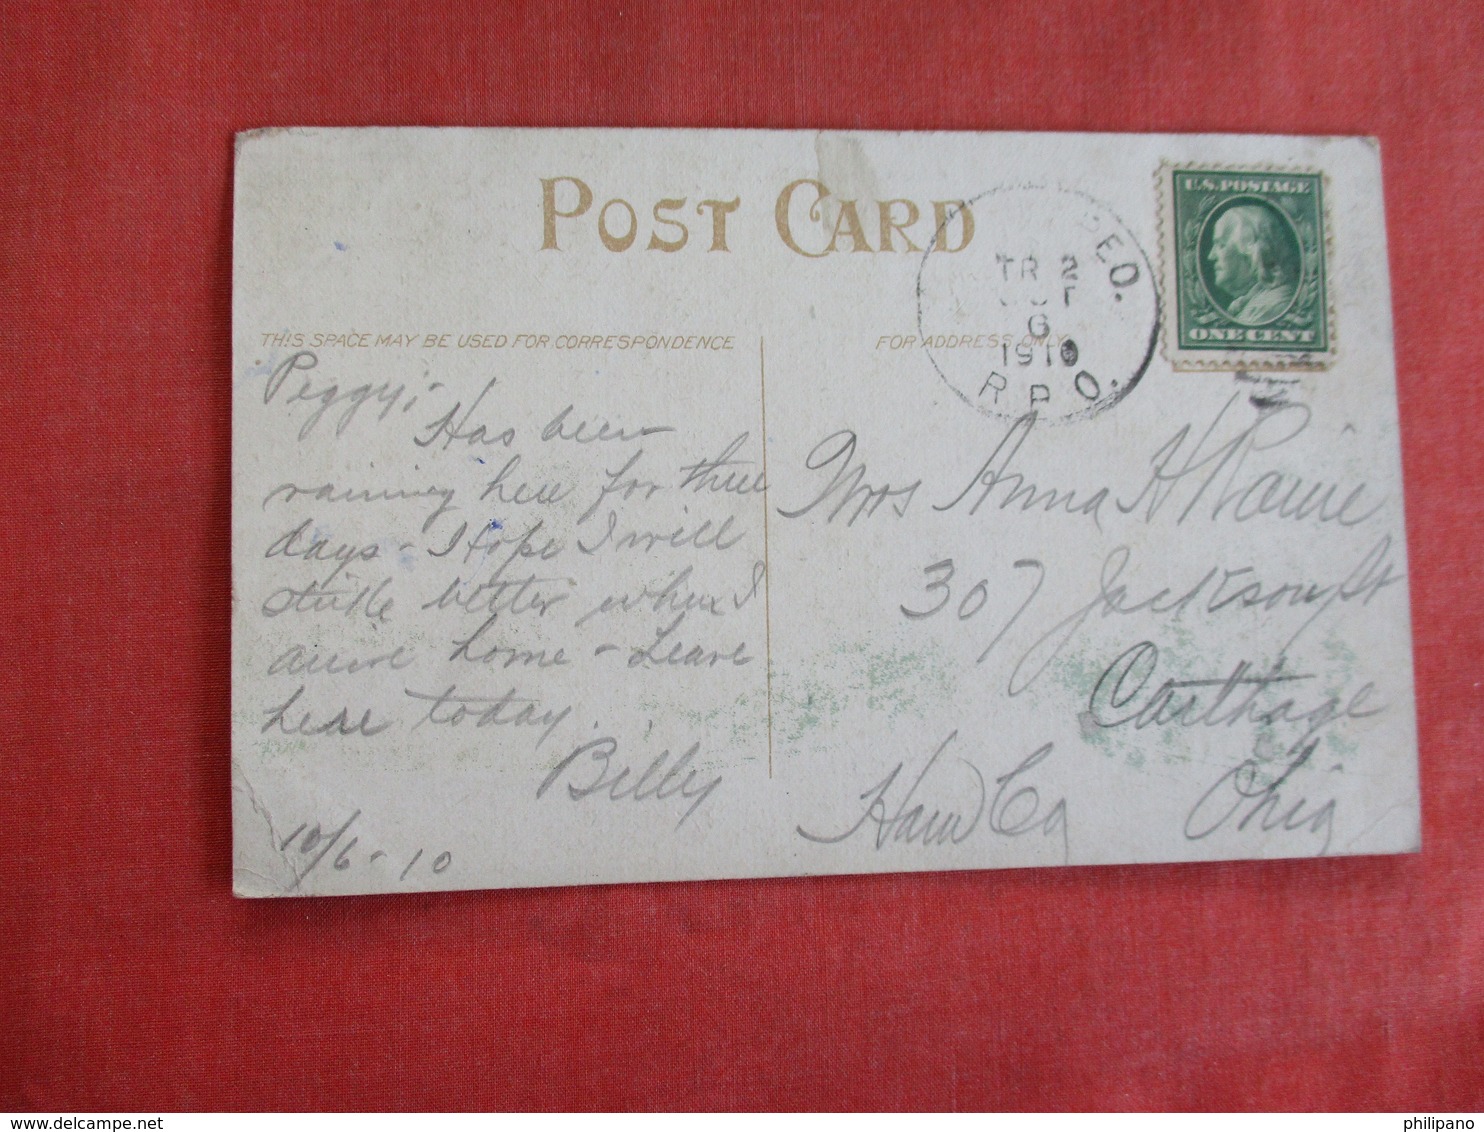 POST CARD
THIS SPACE MAY BE USED FOR CORRESPONDENCE
FOR ADDRESS ONLY
U.S. POSTAGE
ONE CENT
PEO.
TR 2
OCT
6
1910
R.P.O.
Peggy;-
Has been
raining here for three
days - Hope I will
strike better when I
arrive home - Leave
here today.
Billy
10/6-10
Mrs Anna H
307 Jackson St
Carthage
Ham Co
Ohio
philipano
delcampe.net